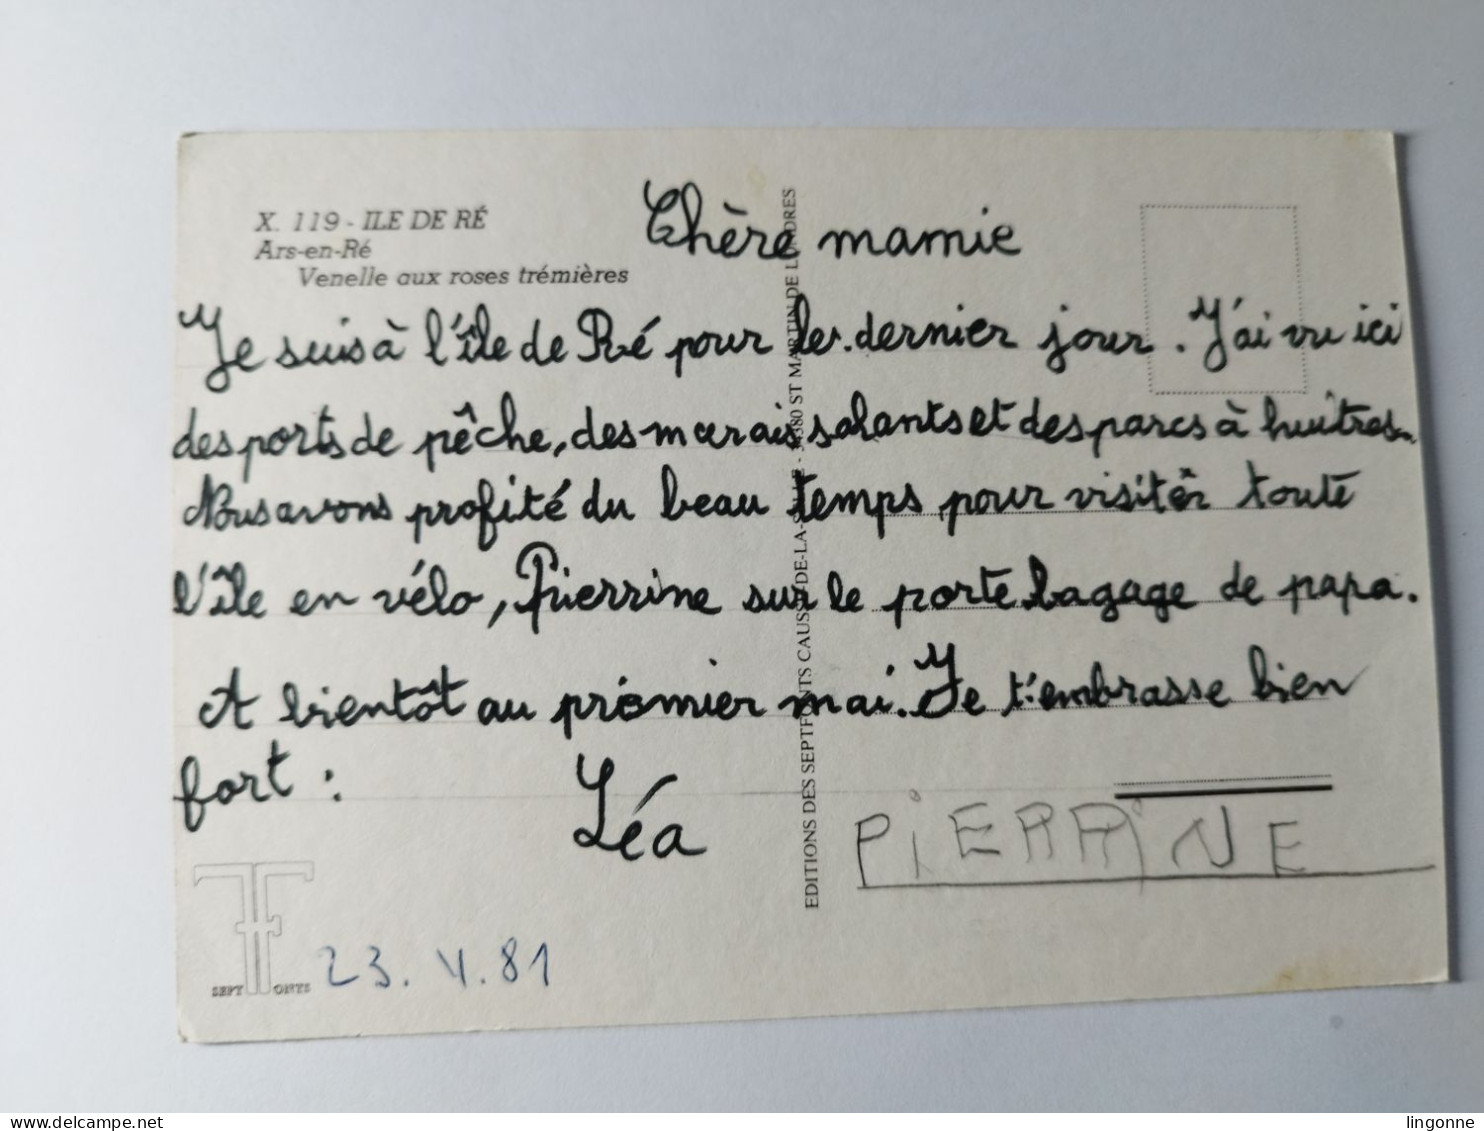 X. 119 - ILE DE RÉ
Ars-en-Ré
Venelle aux roses trémières
Chère mamie
Je suis à l'île de Ré pour le dernier jour. J'ai vu ici
des ports de pêche, des marais salants et des parcs à huitres.
Nous avons profité du beau temps pour visiter toute
l'île en vélo, Pierrine sur le porte bagage de papa.
A bientôt au premier mai. Je t'embrasse bien
fort :
Léa
PiERRiNE
23. V. 81
SEPT FONTS
EDITIONS DES SEPTFONTS ST MARTIN DE LONDRES
lingonne